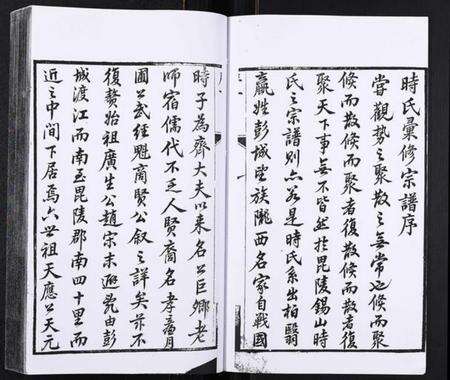 時氏彙修宗譜序
嘗觀勢之聚散之無常也倏而聚
倏而散倏而聚者復散倏而散者復
聚天下事無不皆然於毘陵錫山時
氏之宗譜別亦若是時氏系出柏翳
嬴姓彭城望族隴西名家自戰國
時子為齊大夫以來名公巨卿老
師宿儒代不乏人賢裔名孝
圃公武經魁商賢公叙之詳矣茲不
復贅始祖廣生公趙宋末避兇由彭
城渡江而南至毘陵郡南四十里而
近之中間下居焉六世祖天應公天元